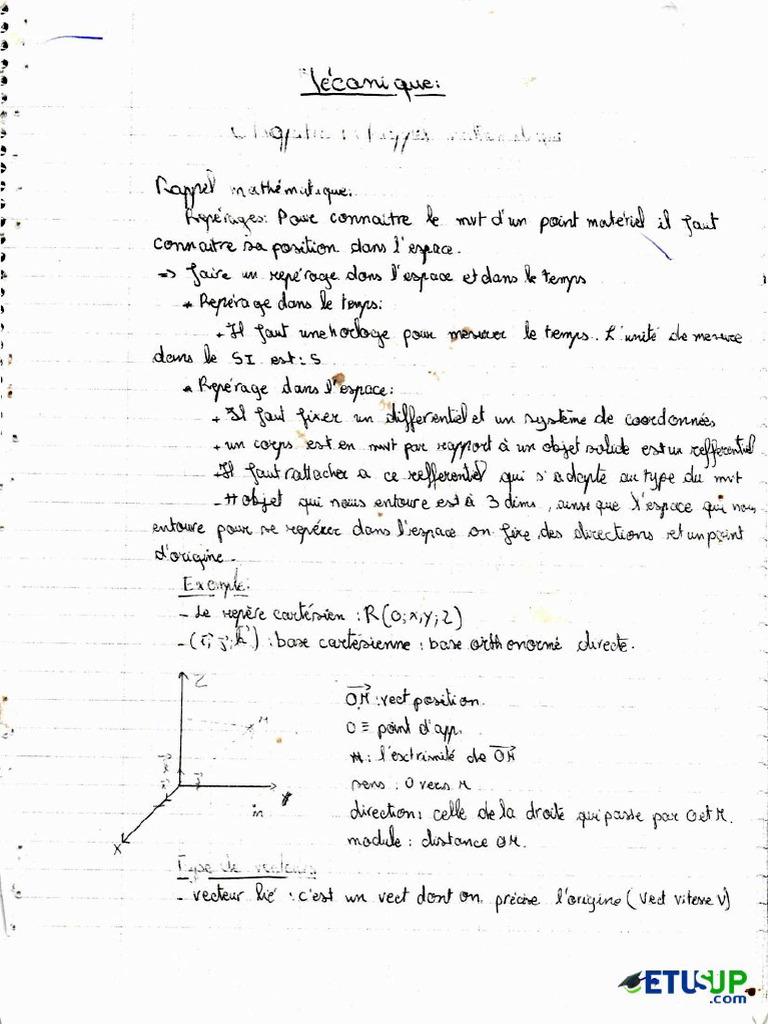 Mécanique:
Rappel mathématique:
Repérages: Pour connaitre le mvt d'un point matériel il faut
connaitre sa position dans l'espace.
=> faire un repérage dans l'espace et dans le temps
* Repérage dans le temps:
+ Il faut une horloge pour mesurer le temps. L'unité de mesure
dans le SI est: s
* Repérage dans l'espace:
+ Il faut fixer un differentiel et un système de coordonnées
+ un corps est en mvt par rapport à un objet solide est un refferentiel
+ Il faut attacher a ce refferentiel qui s'adapte au type du mvt
- objet qui nous entoure est à 3 dims, ainsi que l'espace qui nous
entoure pour se repérer dans l'espace on fixe des directions et un point
d'origine.
Exemple:
- Le repère cartésien : R(O;x,y;z)
- (i; j; k) : base cartésienne : base orthonormé directe.
Z
M
y
x
OM : vect position.
O ≡ point d'app.
M : l'extrimité de OM
sens : O vers M
direction: celle de la droite qui passe par O et M.
module : distance OM.
Type de vecteurs
- vecteur lié : c'est un vect dont on précise l'origine (vect vitesse V)
ETUSUP
.com